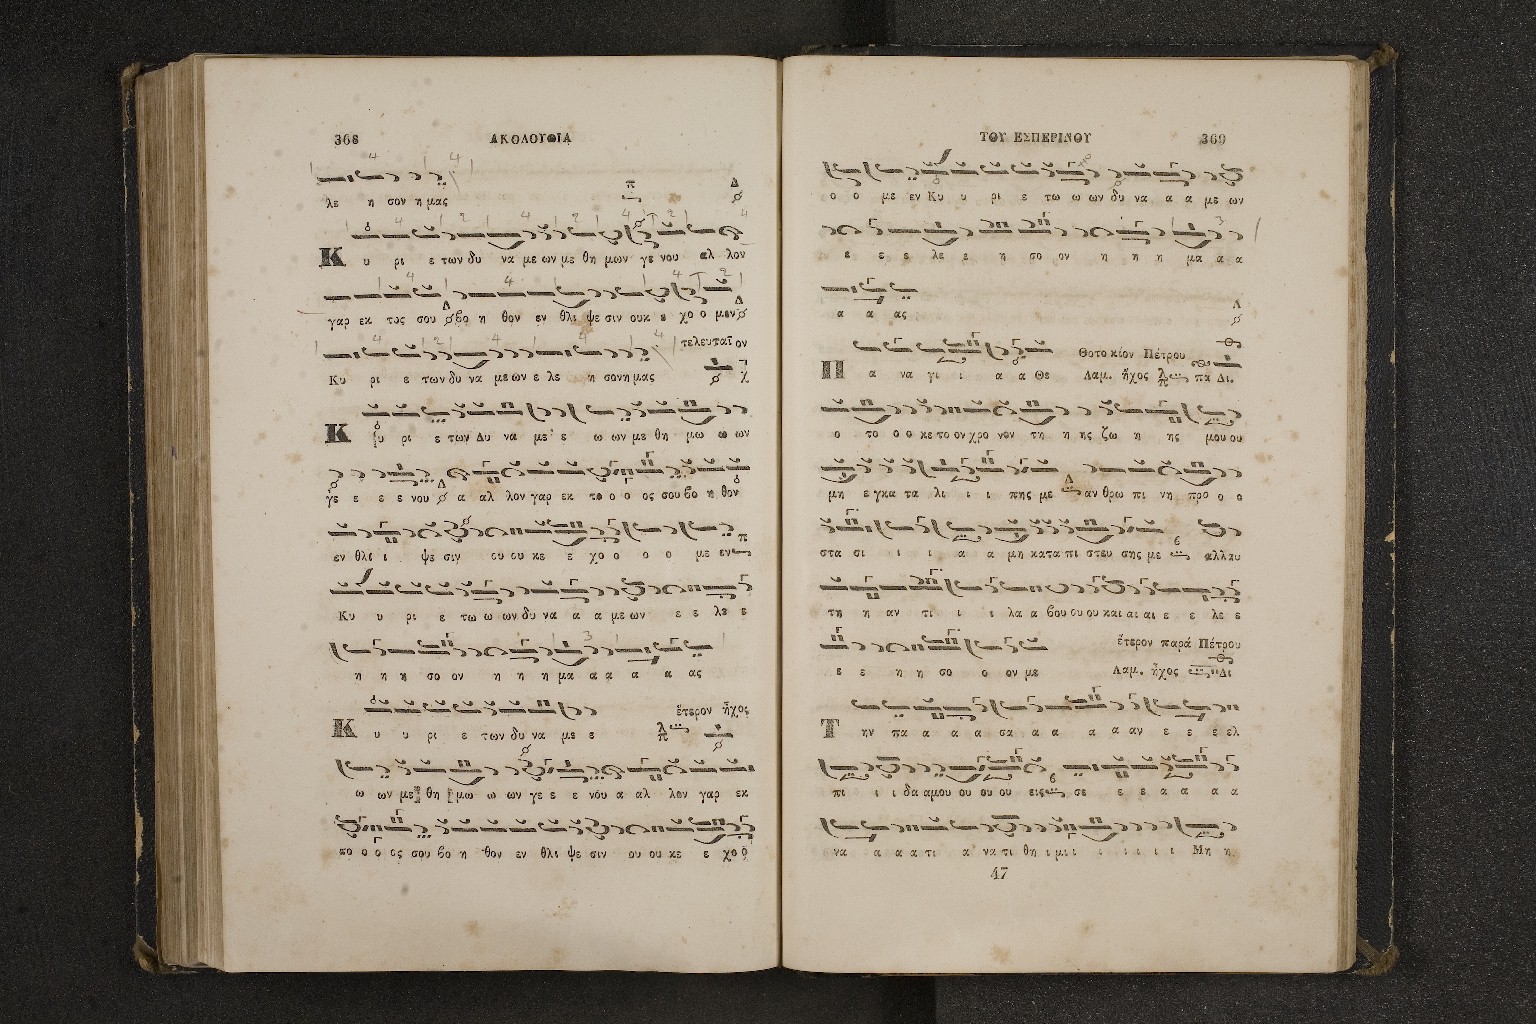 368 ΑΚΟΛΟΥΘΙΑ
λε η σον η μας
Κ υ ρι ε των δυ να με ων με θη μων γε νου αλ λον
γαρ εκ τος σου βο η θον εν θλι ψε σιν ουκ ε χο ο μεν
τελευταῖον
Κυ ρι ε των δυ να με ων ε λε η σον η μας
Κ υ ρι ε των Δυ να με ε ω ων με θη μω ω ων
γε ε ε ε νου α αλ λον γαρ εκ το ο ο ος σου βο η θον
εν θλι ι ψε σιν ου ου κε ε χο ο ο ο με εν
Κυ υ ρι ε τω ω ων δυ να α α με ων ε ε λε ε
η η η σο ον η η η μα α α α α ας
ἕτερον ἦχος
Κ υ υ ρι ε των δυ να με ε
ω ων με θη μω ω ων γε ε ε νου α αλ λον γαρ εκ
το ο ο ος σου βο η θον εν θλι ψε σιν ου ου κε ε χο ο
ΤΟΥ ΕΣΠΕΡΙΝΟΥ 369
ο ο με εν Κυ υ ρι ε τω ω ων δυ να α α με ων
ε ε ε λε ε η σο ον η η η μα α α
α α ας
Θοτοκίον Πέτρου
Π α να γι ι α α Θε Λαμ. ἦχος πα Δι.
ο το ο ο κε το ον χρο νον τη η ης ζω η ης μου ου
μη εγκα τα λι ι ι πης με αν θρω πι νη προ ο ο
στα σι ι ι α α μη κατα πι στευ σης με αλλαυ
τη η αν τι ι ι λα α βου ου ου και αι αι ε ε λε ε
ἕτερον παρά Πέτρου
ε ε η η σο ο ον με Λαμ. ἦχος Δι
Τ ην πα α α α σα α α α α αν ε ε ε ελ
πι ι ι δα αμου ου ου ου εις σε ε ε α α α α
να α α α τι α να τι θη ι μι ι ι ι ι ι ι Μη η
47